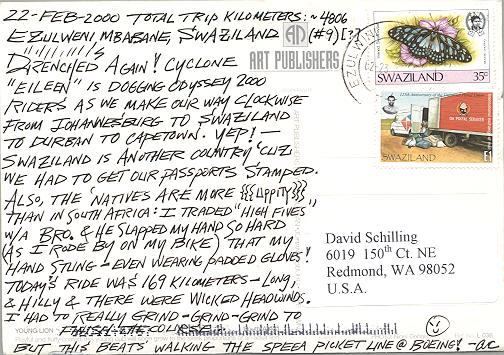 22-FEB-2000 TOTAL TRIP KILOMETERS: ~4806
EZULWENI, MBABANE, SWAZILAND (#9) [?]
DRENCHED AGAIN! CYCLONE
"EILEEN" IS DOGGING ODYSSEY 2000
RIDERS AS WE MAKE OUR WAY CLOCKWISE
FROM JOHANNESBURG TO SWAZILAND
TO DURBAN TO CAPETOWN. YEP! —
SWAZILAND IS ANOTHER COUNTRY 'CUZ
WE HAD TO GET OUR PASSPORTS STAMPED.
ALSO, THE 'NATIVES ARE MORE UPPITY
THAN IN SOUTH AFRICA: I TRADED "HIGH FIVES"
W/A BRO. & HE SLAPPED MY HAND SO HARD
(AS I RODE BY ON MY BIKE) THAT MY
HAND STUNG - EVEN WEARING PADDED GLOVES!
TODAY'S RIDE WAS 169 KILOMETERS - LONG,
& HILLY & THERE WERE WICKED HEADWINDS.
I HAD TO REALLY GRIND-GRIND-GRIND TO
FINISH THE
BUT THIS BEATS WALKING THE SPEEA PICKET LINE @ BOEING! -
AP
ART PUBLISHERS
YOUNG LION
EZULWINI
SWAZILAND 35c
SWAZILAND
David Schilling
6019 150th Ct. NE
Redmond, WA 98052
U.S.A.